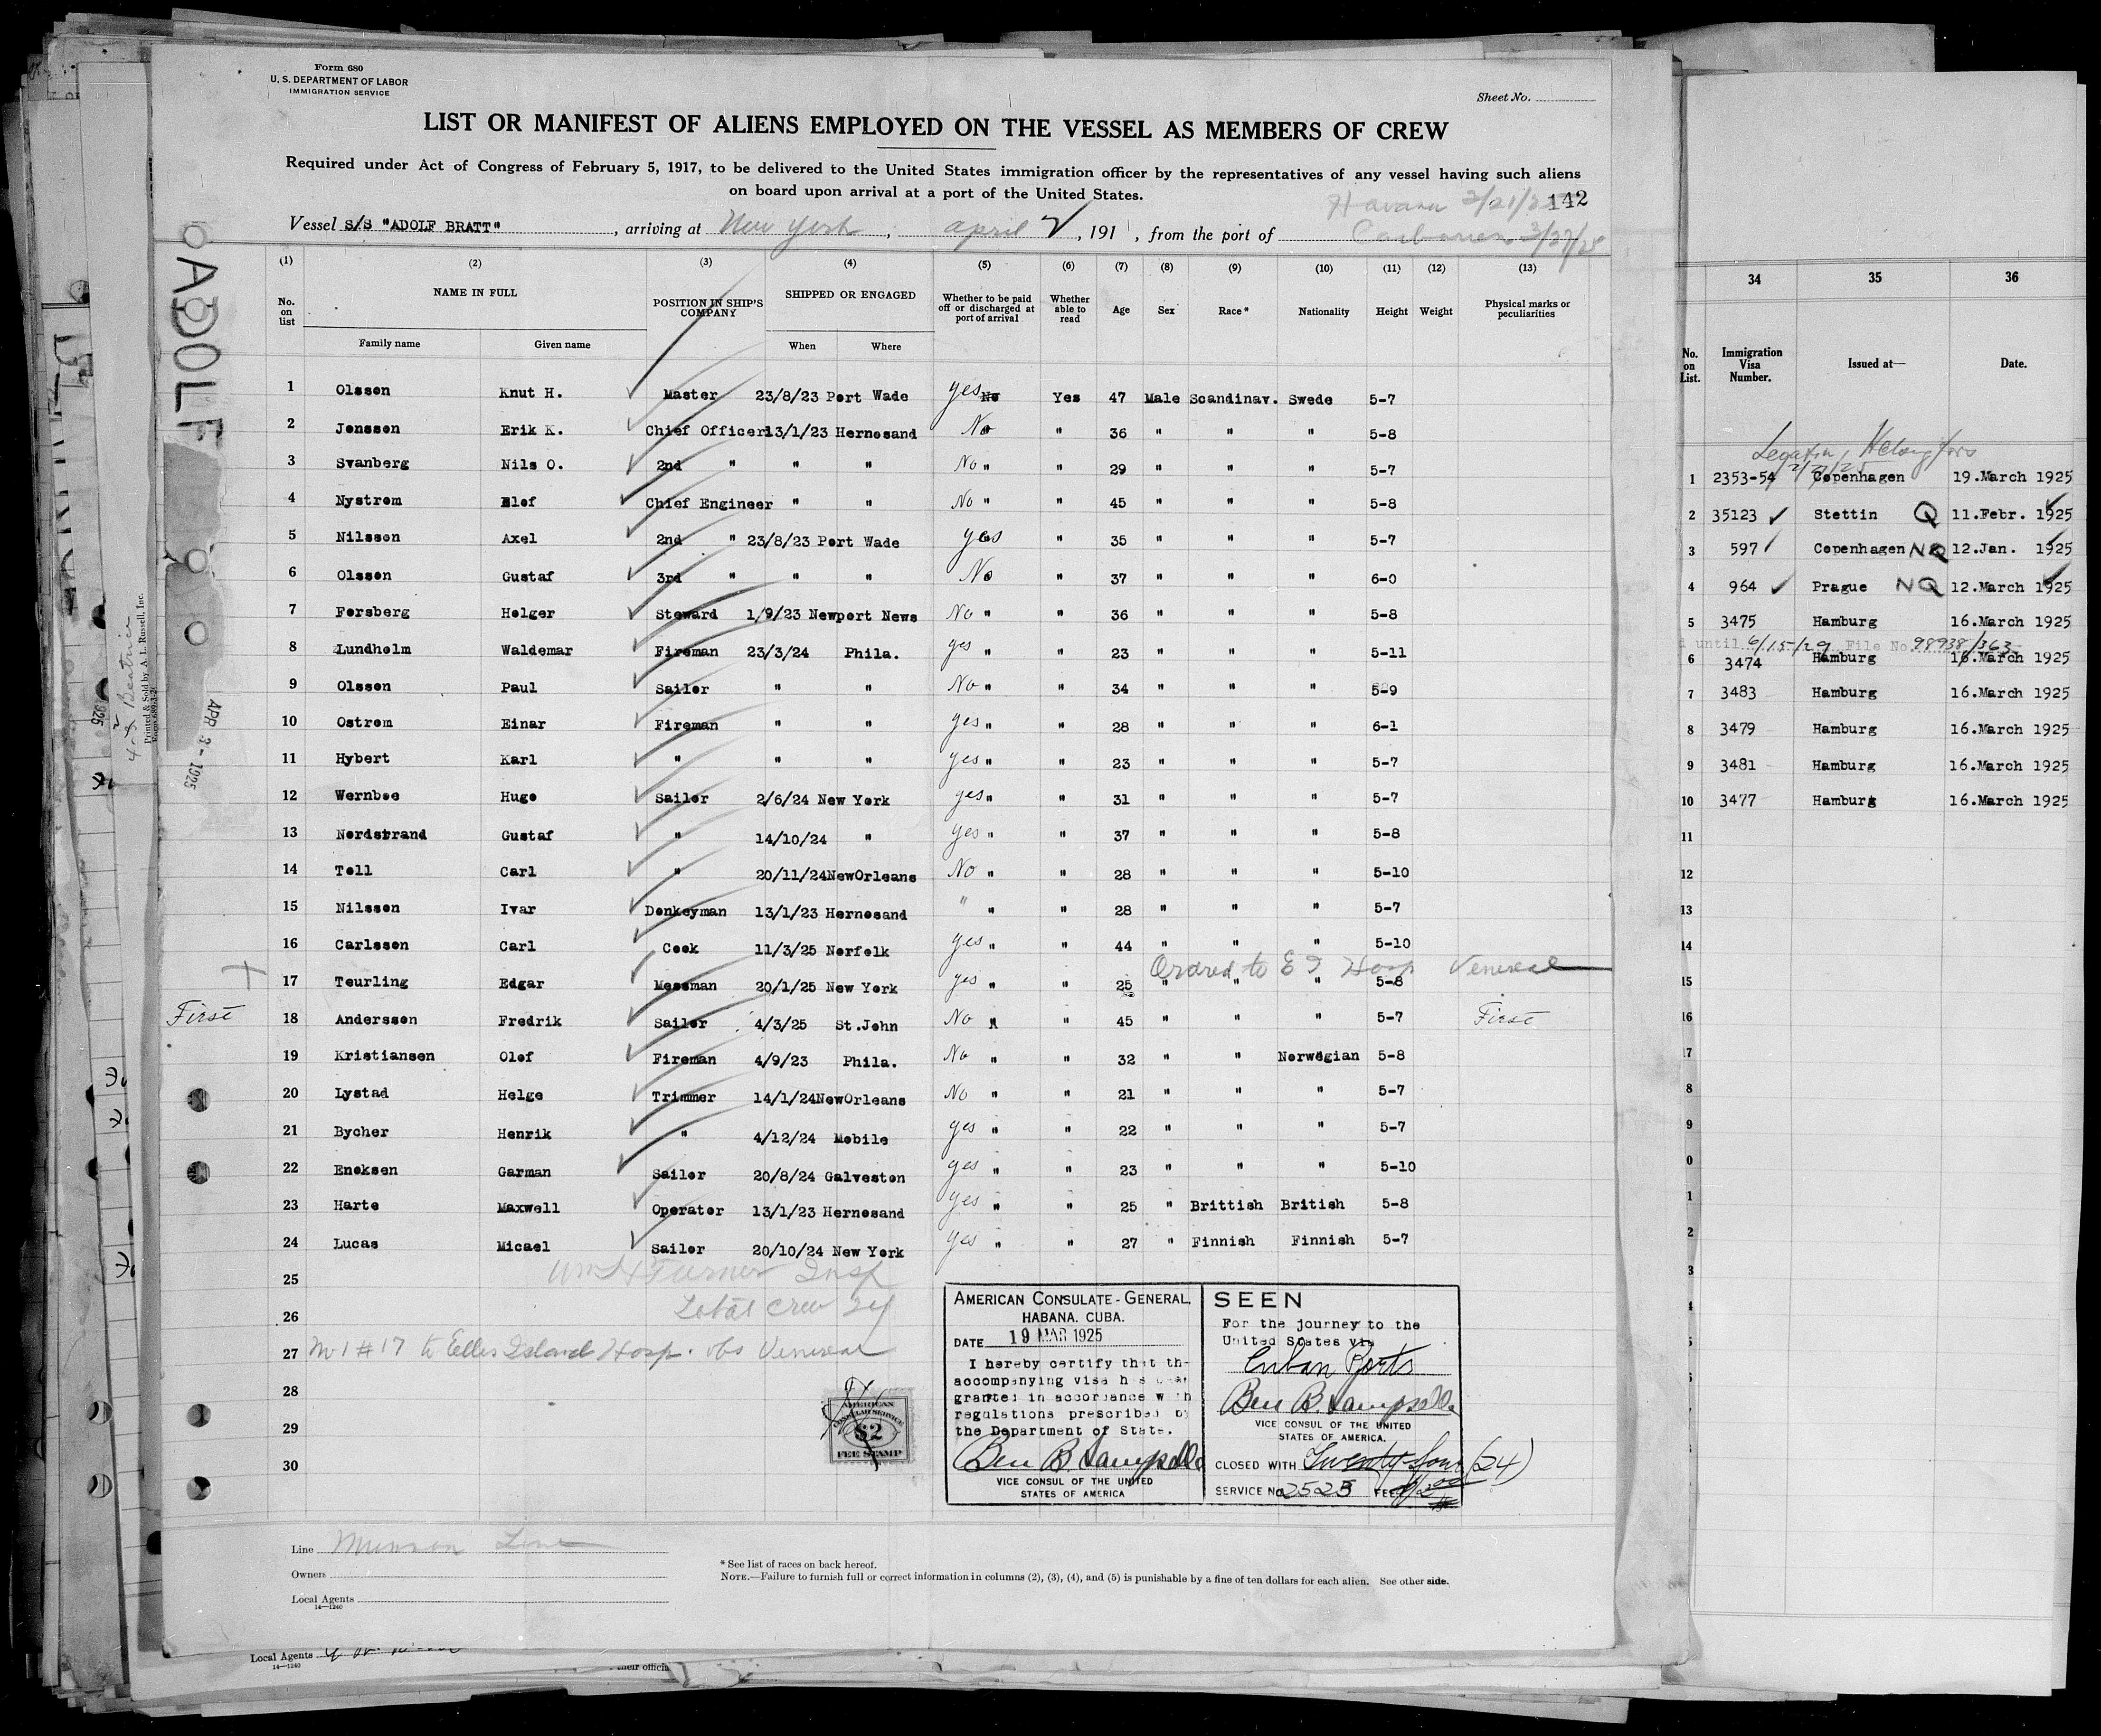 Form 680
U. S. DEPARTMENT OF LABOR
IMMIGRATION SERVICE
Sheet No.
LIST OR MANIFEST OF ALIENS EMPLOYED ON THE VESSEL AS MEMBERS OF CREW
Required under Act of Congress of February 5, 1917, to be delivered to the United States immigration officer by the representatives of any vessel having such aliens
on board upon arrival at a port of the United States.
Havana 3/21/25 142
Vessel S/S "ADOLF BRATT", arriving at New York, april 2, 191, from the port of 3/27/25
(1) (2) (3) (4) (5) (6) (7) (8) (9) (10) (11) (12) (13)
No. on list NAME IN FULL POSITION IN SHIP'S COMPANY SHIPPED OR ENGAGED Whether to be paid off or discharged at port of arrival Whether able to read Age Sex Race* Nationality Height Weight Physical marks or peculiarities
Family name Given name When Where
1 Olsson Knut H. Master 23/8/23 Port Wade yes No Yes 47 Male Scandinav. Swede 5-7
2 Jonsson Erik K. Chief Officer 13/1/23 Hernosand No " 36 " " " 5-8
3 Svanberg Nils O. 2nd " " " No " " 29 " " " 5-7
4 Nystrom Elof Chief Engineer " " No " " 45 " " " 5-8
5 Nilsson Axel 2nd " 23/8/23 Port Wade yes " 35 " " " 5-7
6 Olsson Gustaf 3rd " " " No " 37 " " " 6-0
7 Forsberg Holger Steward 1/9/23 Newport News No " " 36 " " " 5-8
8 Lundholm Waldemar Fireman 23/3/24 Phila. yes " " 23 " " " 5-11
9 Olsson Paul Sailor " " No " " 34 " " " 5-9
10 Ostrom Einar Fireman " " yes " " 28 " " " 6-1
11 Hybert Karl " " " yes " " 23 " " " 5-7
12 Wernboe Hugo Sailor 2/6/24 New York yes " " 31 " " " 5-7
13 Nordstrand Gustaf " 14/10/24 " yes " " 37 " " " 5-8
14 Toll Carl " 20/11/24 NewOrleans No " " 28 " " " 5-10
15 Nilsson Ivar Donkeyman 13/1/23 Hernosand " " " 28 " " " 5-7
16 Carlsson Carl Cook 11/3/25 Norfolk yes " " 44 " " " 5-10
Ordred to E I Hosp Venereal
17 Teurling Edgar Messman 20/1/25 New York yes " " 25 " " " 5-8
First 18 Andersson Fredrik Sailor 4/3/25 St.John No " " 45 " " " 5-7 First
19 Kristiansen Olof Fireman 4/9/23 Phila. No " " 32 " " Norwegian 5-8
20 Lystad Helge Trimmer 14/1/24 NewOrleans No " " 21 " " " 5-7
21 Bycher Henrik " 4/12/24 Mobile yes " " 22 " " " 5-7
22 Enoksen Garman Sailor 20/8/24 Galveston yes " " 23 " " " 5-10
23 Harte Maxwell Operator 13/1/23 Hernosand yes " " 25 " Brittish British 5-8
24 Lucas Micael Sailor 20/10/24 New York yes " " 27 " Finnish Finnish 5-7
25 Wm H Turner Insp
26 Total crew 24
27 #17 to Ellis Island Hosp. obs Venereal
28
29
30
AMERICAN CONSULAR SERVICE
$2
FEE STAMP
AMERICAN CONSULATE-GENERAL,
HABANA. CUBA.
DATE 19 MAR 1925
I hereby certify that the
accompanying visa has been
granted in accordance with
regulations prescribed by
the Department of State.
Ben B.
VICE CONSUL OF THE UNITED
STATES OF AMERICA
SEEN
For the journey to the
United States via
Cuban Ports
Ben B.
VICE CONSUL OF THE UNITED
STATES OF AMERICA.
CLOSED WITH Twenty-four (24)
SERVICE No. 2525 FEE
Line Munson Line
Owners
Local Agents
14—1240
* See list of races on back hereof.
NOTE.—Failure to furnish full or correct information in columns (2), (3), (4), and (5) is punishable by a fine of ten dollars for each alien. See other side.
Local Agents
14—1240
their officia
ADOLF
APR 3 - 1925
Printed & Sold by A. L. Russell, Inc.
34 35 36
No. on List. Immigration Visa Number. Issued at— Date.
Legation, Helsingfors
1 2353-54 Copenhagen 19.March 1925
2 35123 Stettin Q 11.Febr. 1925
3 597 Copenhagen NQ 12.Jan. 1925
4 964 Prague NQ 12.March 1925
5 3475 Hamburg 16.March 1925
d until 6/15/29 File No. 98938/363
6 3474 Hamburg 16.March 1925
7 3483 Hamburg 16.March 1925
8 3479 Hamburg 16.March 1925
9 3481 Hamburg 16.March 1925
10 3477 Hamburg 16.March 1925
11
12
13
14
15
16
17
8
9
0
1
2
3